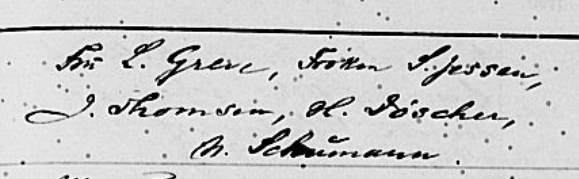 Fru L. Greve, Frøken S. Jessen,
J. Thomsen, H. Döscher,
N. Schümann.